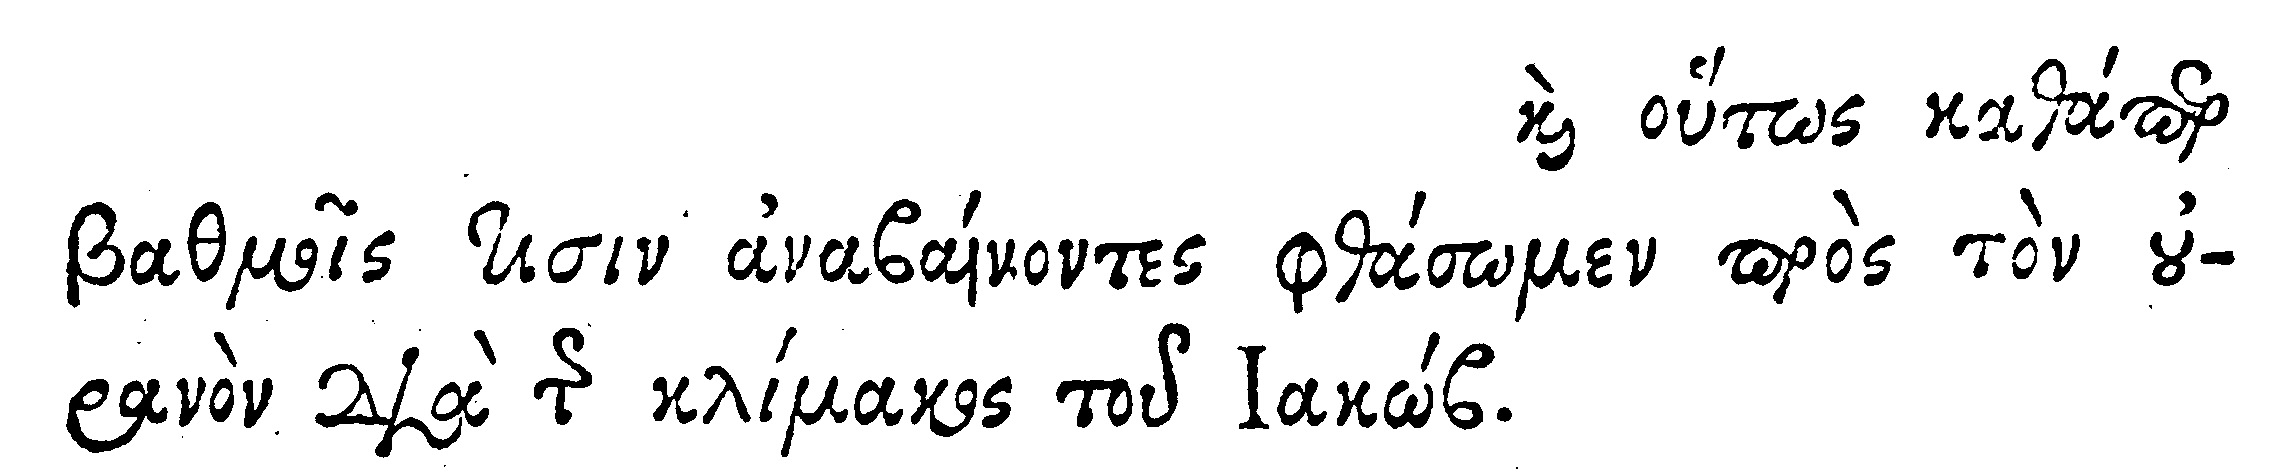 καὶ οὕτως καθάπερ
βαθμοῖς τισιν ἀναβαίνοντες φθάσωμεν πρὸς τὸν οὐ-
ρανὸν διὰ τῆς κλίμακος τοῦ Ιακώβ.